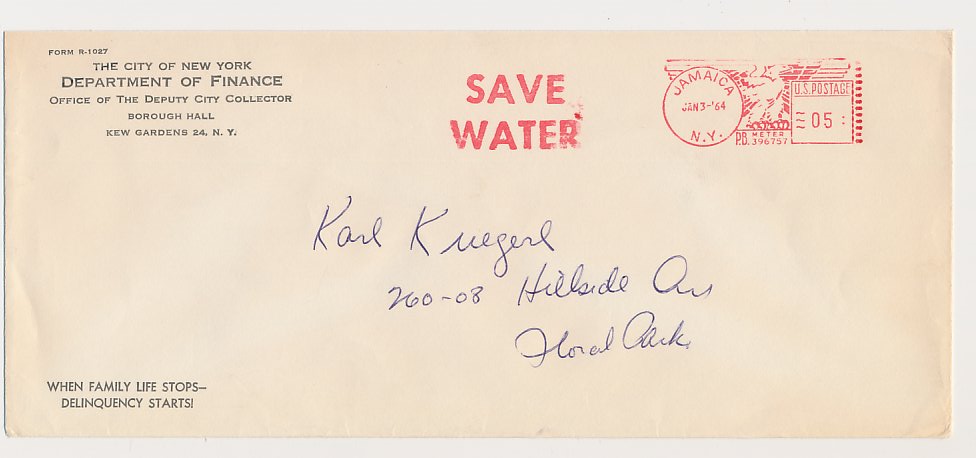 FORM R-1027
THE CITY OF NEW YORK
DEPARTMENT OF FINANCE
OFFICE OF THE DEPUTY CITY COLLECTOR
BOROUGH HALL
KEW GARDENS 24, N. Y.
SAVE
WATER
JAMAICA
JAN 3-'64
N.Y.
U.S. POSTAGE
05
P.B. METER
396757
Karl Kruegerl
260-08 Hillside Ave
Floral Park
WHEN FAMILY LIFE STOPS—
DELINQUENCY STARTS!